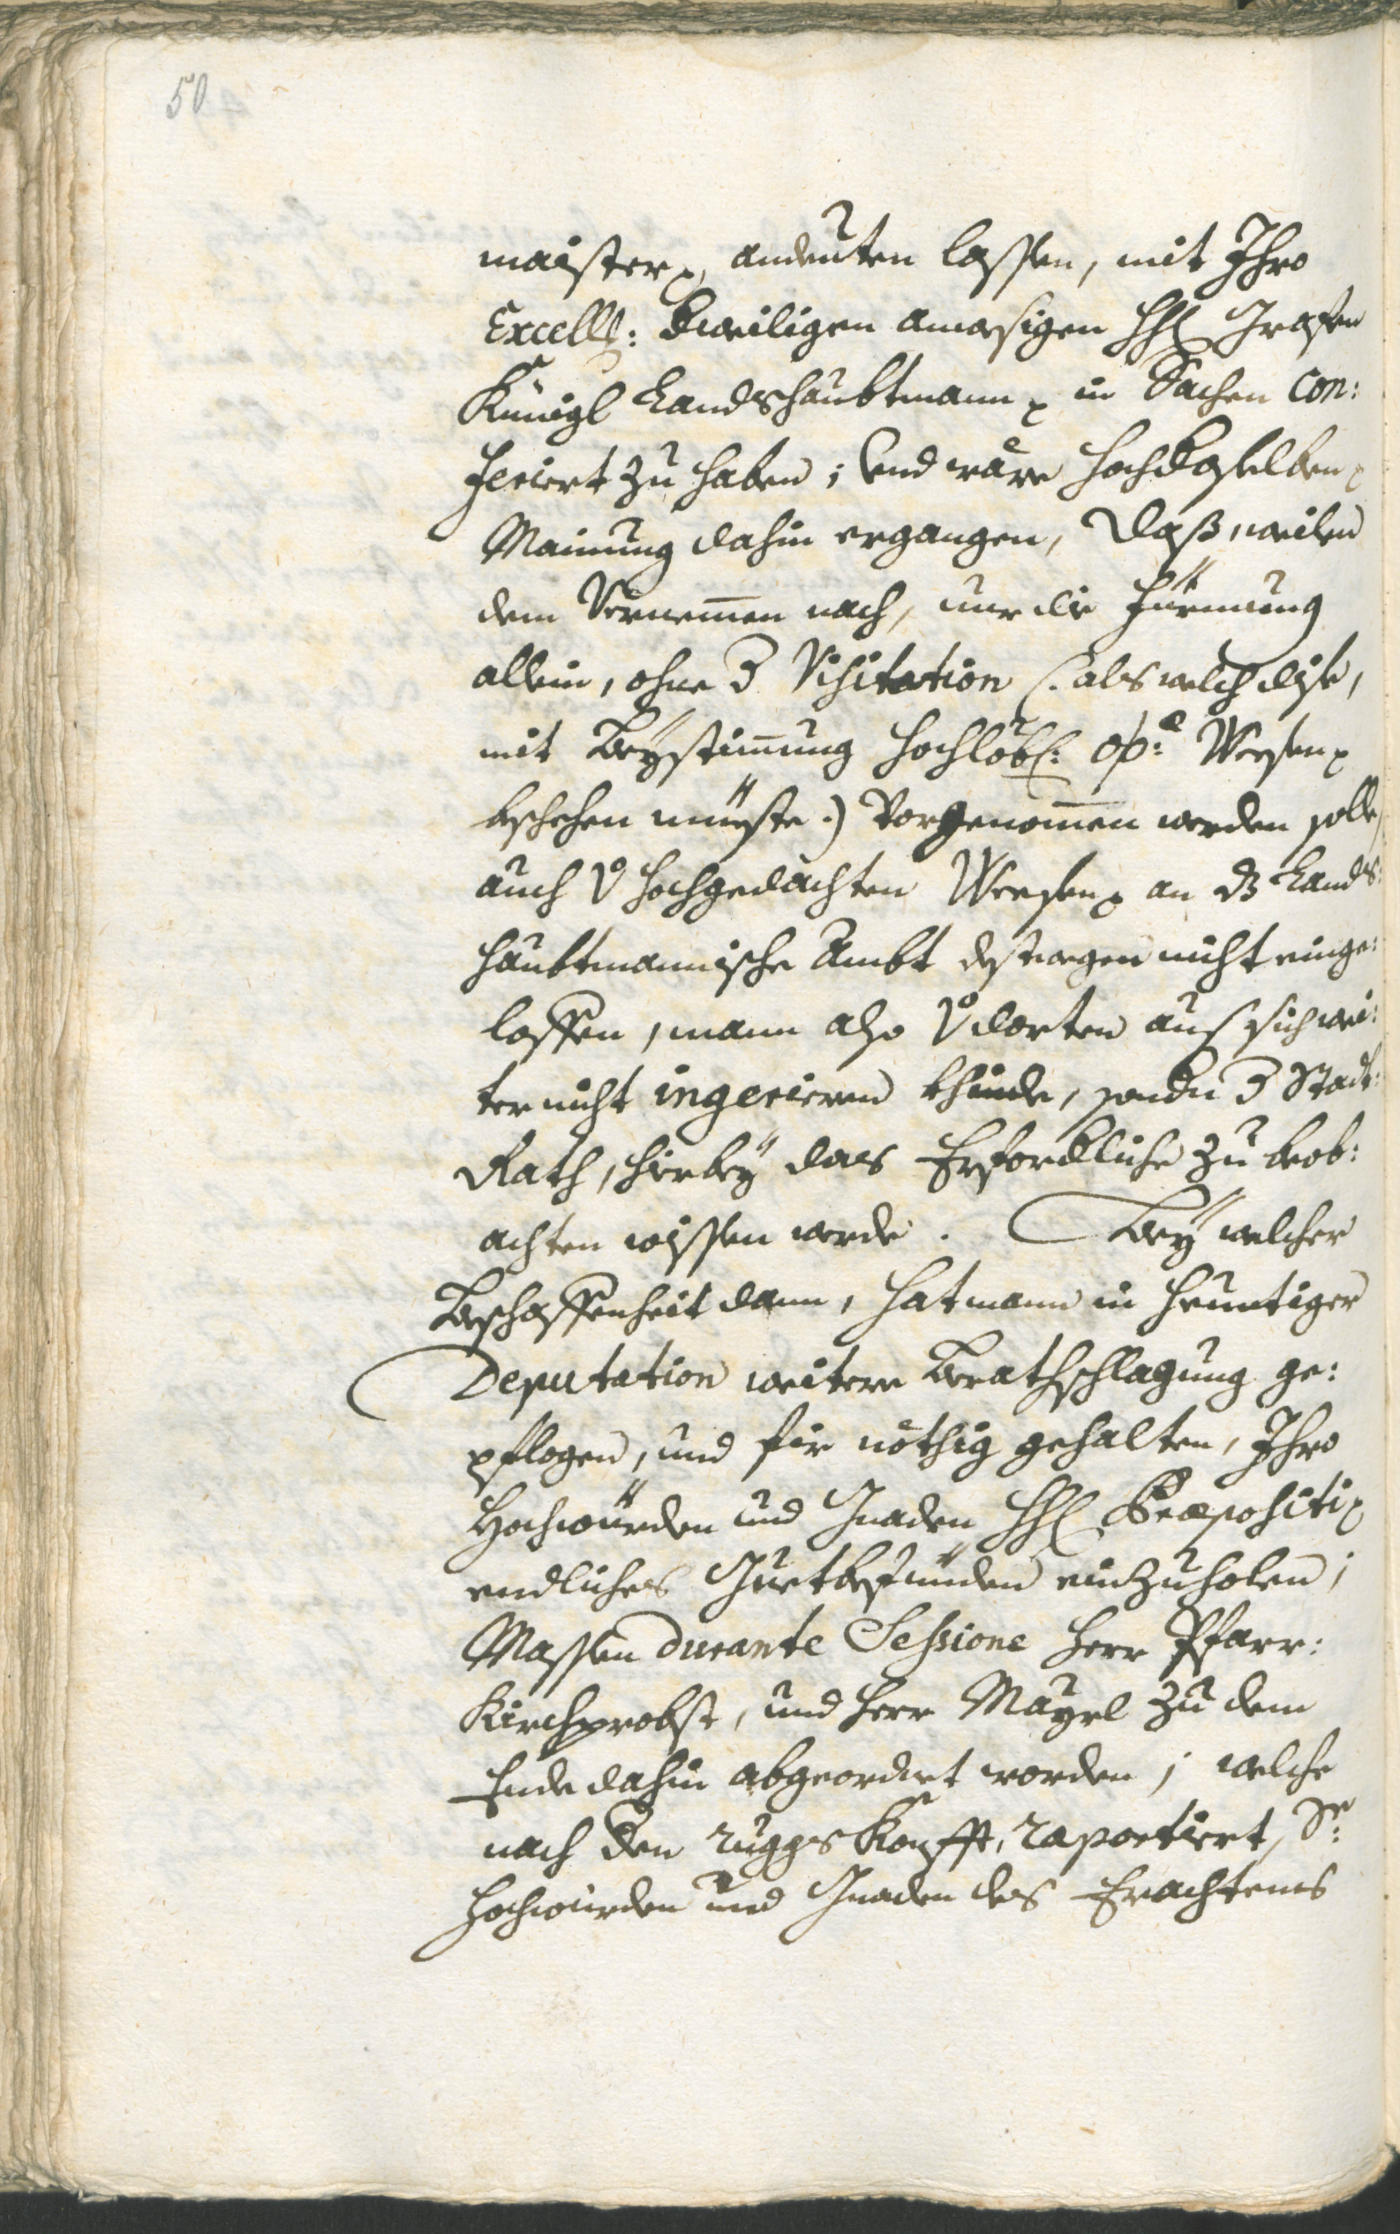 50
maister, andeuten lassen, mit Ihro
Excell: dermaligen HH Grafen
Künigl Landshaubtmann in Sachen con:
feriert zu haben; Und wäre hochdaselben
Mainung dahin ergangen, Daß, weilen
dem Vernemen nach, nur die Firmung
allein, ohne Visitation (: als welch dise,
mit Beÿstimung hochlöbl: Wesen
beschehen müeste.) Vorgenomen werden solle,
auch v hochgedachten Wesen an dz Lands:
haubtmannische Ambt destwegen nicht einge:
loffen, mann also v dorten aus sich wei:
ter nicht ingerieren khinde, sondern Stadt:
Rath, hierbeÿ das Erforderliche zu beob:
achten wissen werde. Beÿ welcher
Beschaffenheit dann, hat mann in heuntiger
Deputation weitere Berathschlagung ge:
pflogen, und für nöthig gehalten, Ihro
Hochwürden und Gnaden HH Præpositi
endliches Guetbefünden einzuholen;
Massen durante Sessione Herr Pfarr:
Kirchprobst, und Herr Maÿrl zu dem
Ende dahin abgeordnet worden; welche
nach den ruggs Konfft, raportiert, Sr:
Hochwürden und Gnaden des Erachtens